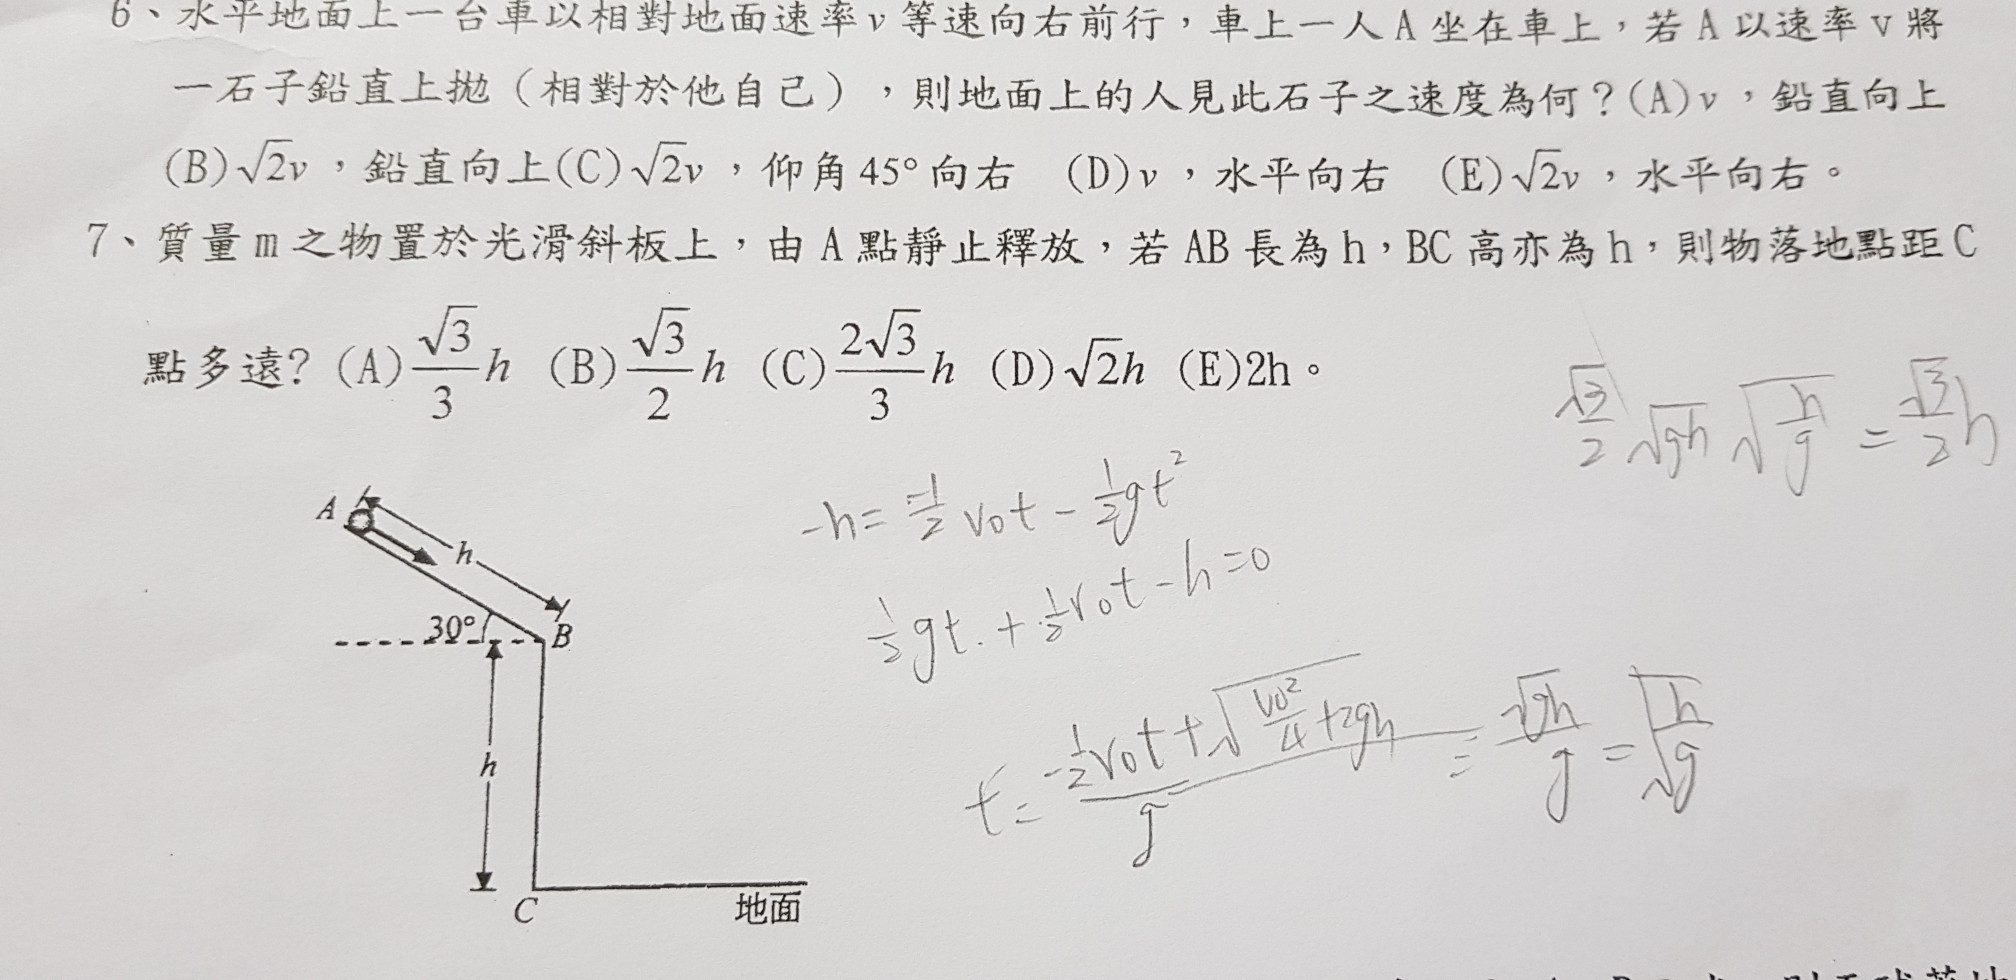 6、水平地面上一台車以相對地面速率v等速向右前行，車上一人A坐在車上，若A以速率v將
一石子鉛直上拋（相對於他自己），則地面上的人見此石子之速度為何？(A)v，鉛直向上
(B)√2v，鉛直向上(C)√2v，仰角45°向右 (D)v，水平向右 (E)√2v，水平向右。
7、質量m之物置於光滑斜板上，由A點靜止釋放，若AB長為h，BC高亦為h，則物落地點距C
點多遠？(A)√3/3 h (B)√3/2 h (C)2√3/3 h (D)√2h (E)2h。
√3/2 √gh √h/g = √3/2 h
A
h
30°
B
h
C
地面
-h = -1/2 v₀t - 1/2 gt²
1/2 gt. + 1/2 v₀t - h = 0
t = -1/2 v₀t + √(v₀²/4 + 2gh) / g = √gh / g = √h/g